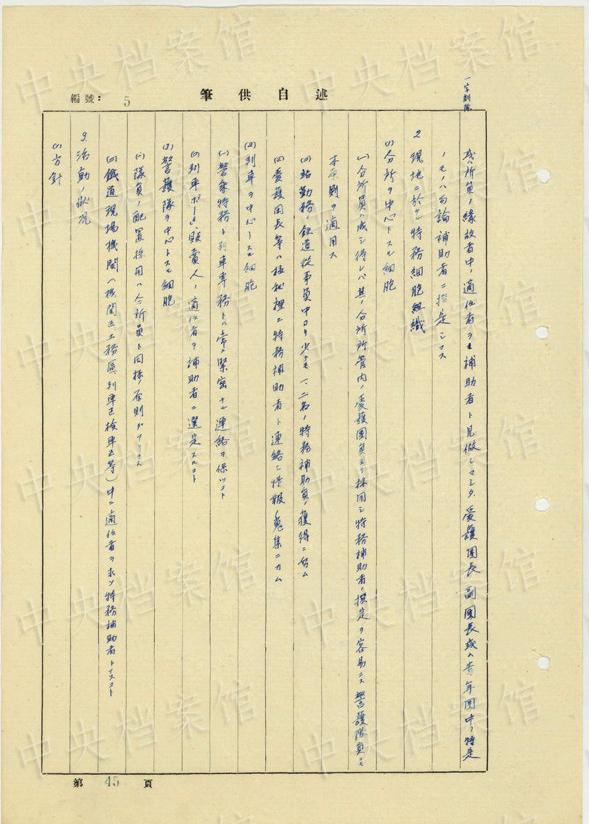 述自供筆
編號: 5
一字刪除
或ハ所員ノ縁故者中ノ適任者ヲモ補助者ト見做シマシタ 愛護団長 副団長或ハ青年団中ノ特定
ノモノハ勿論補助者ニ指定シマス
2. 現地ニ於ケル特務細胞組織
(1) 分所ヲ中心トスル細胞
(イ) 分所員ハ成シ得レバ其ノ分所所管内ノ愛護団員ヨリ採用シ特務補助者ノ撰定ヲ容易ニス 警護隊員モ
本原則ヲ適用ス
(ロ) 站勤務ノ鉄道従事員中ヨリ少クモ一、二名ノ特務補助員ノ獲得ニ努ム
(ハ) 愛護団長等ハ極秘裡ニ特務補助者ト連絡シ情報ノ蒐集ニ力ム
(2) 列車ヲ中心トスル細胞
(イ) 警乗特務ト列車専務トハ常ニ緊密ナル連絡ヲ保ツコト
(ロ) 列車ボーイ、販売人ノ適任者ヲ補助者ニ選定スルコト
(3) 警護隊ヲ中心トスル細胞
(イ) 隊員ノ配置採用ハ分所員ト同様ノ原則ガアリマス
(ロ) 鐵道現場機関(機関区工務区列車区検車区等)中ニ適任者ヲ求メ特務補助者トナスコト
3. 活動ノ状況
(1) 方針
第 45 頁
中央档案馆